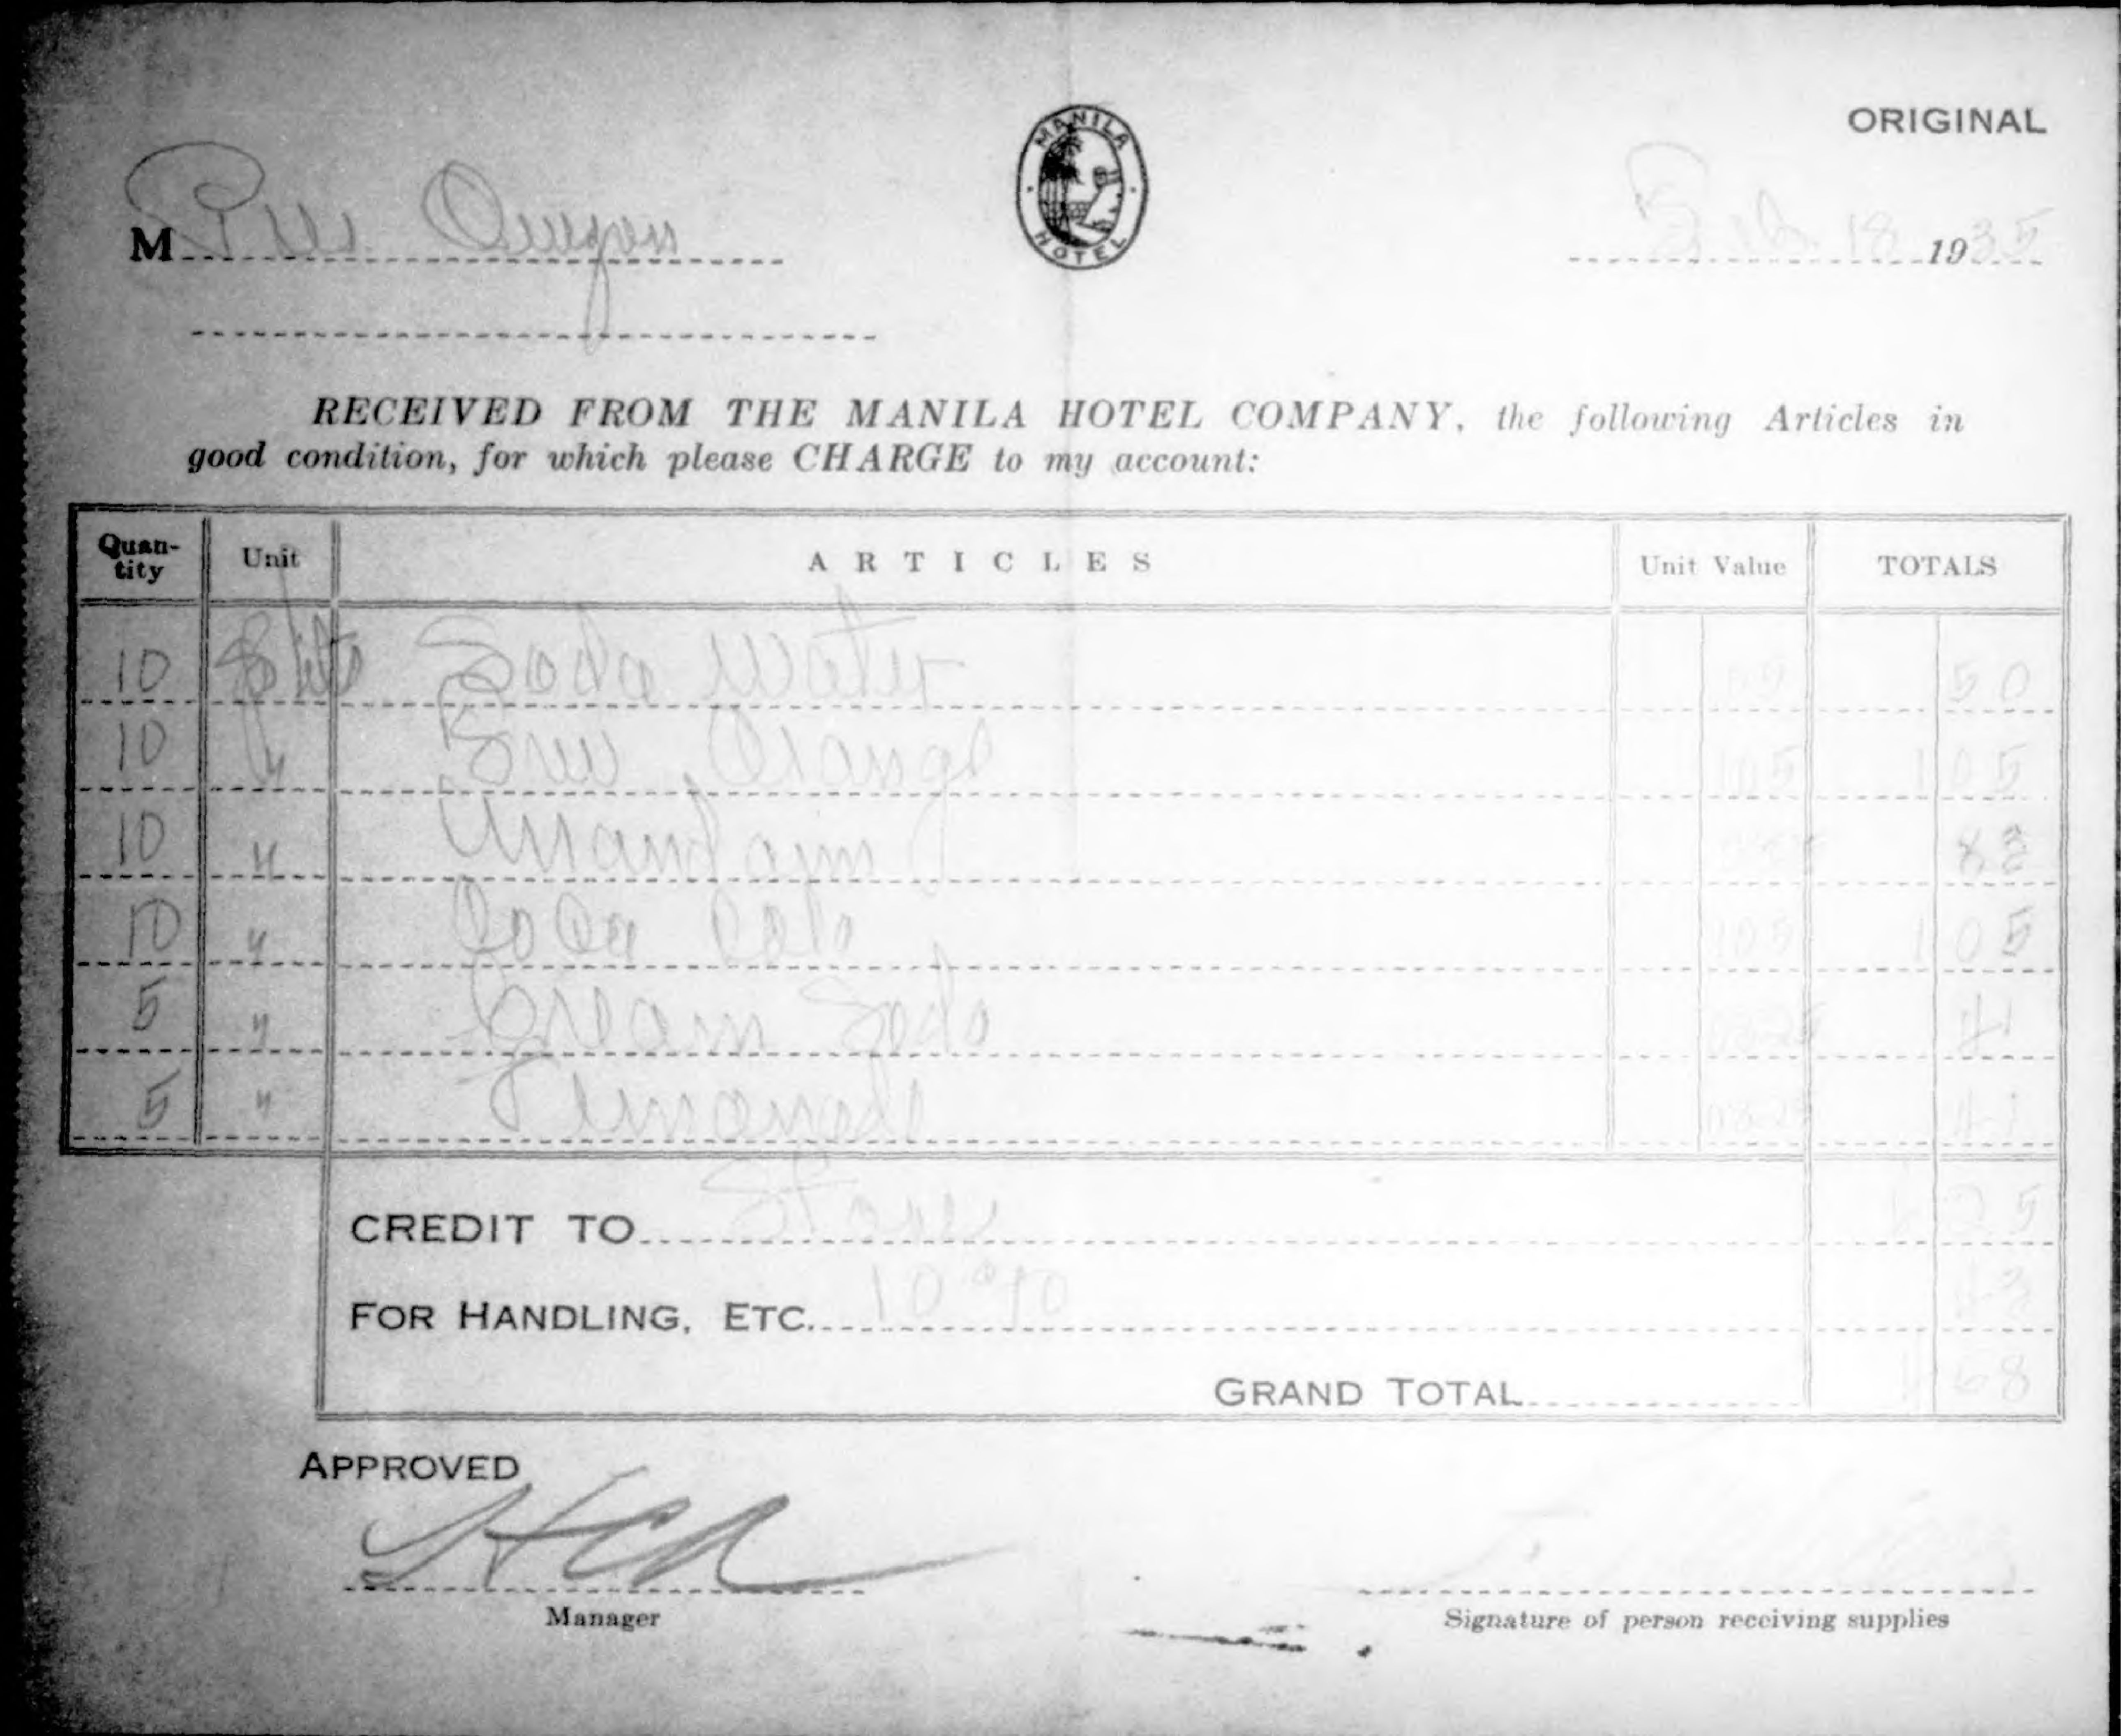 ORIGINAL
MANILA
HOTEL
M Pres. Quezon
Feb. 18 1935
RECEIVED FROM THE MANILA HOTEL COMPANY, the following Articles in
good condition, for which please CHARGE to my account:
Quan-
tity Unit ARTICLES Unit Value TOTALS
10 Splits Soda Water 05 50
10 " Orange 105 1 05
10 " 
10 " Coca Cola 105 1 05
5 " Cream Soda 0825 41
5 " Limonada 0825 41
CREDIT TO Stores 4 25
FOR HANDLING, ETC. 10% 43
GRAND TOTAL 4 68
APPROVED
HCA
Manager
Signature of person receiving supplies